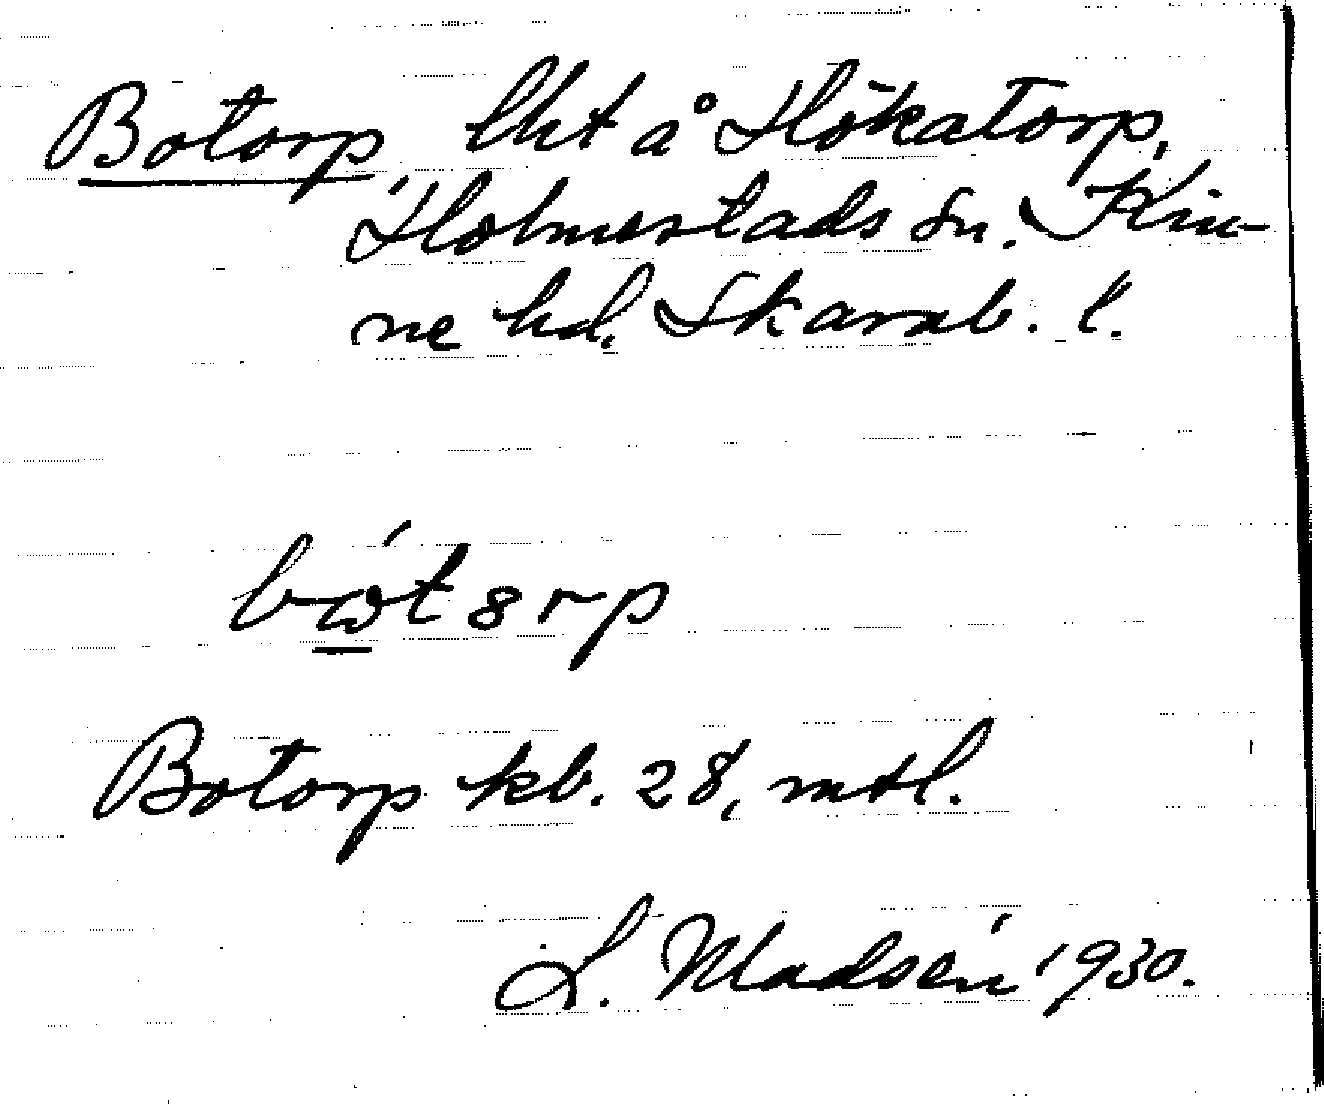 Botorp, lht å Hökatorp,
Holmestads sn. Kin-
ne hd. Skarab. l.
Botorp kb. 28, mtl.
L. Madsén 1930.